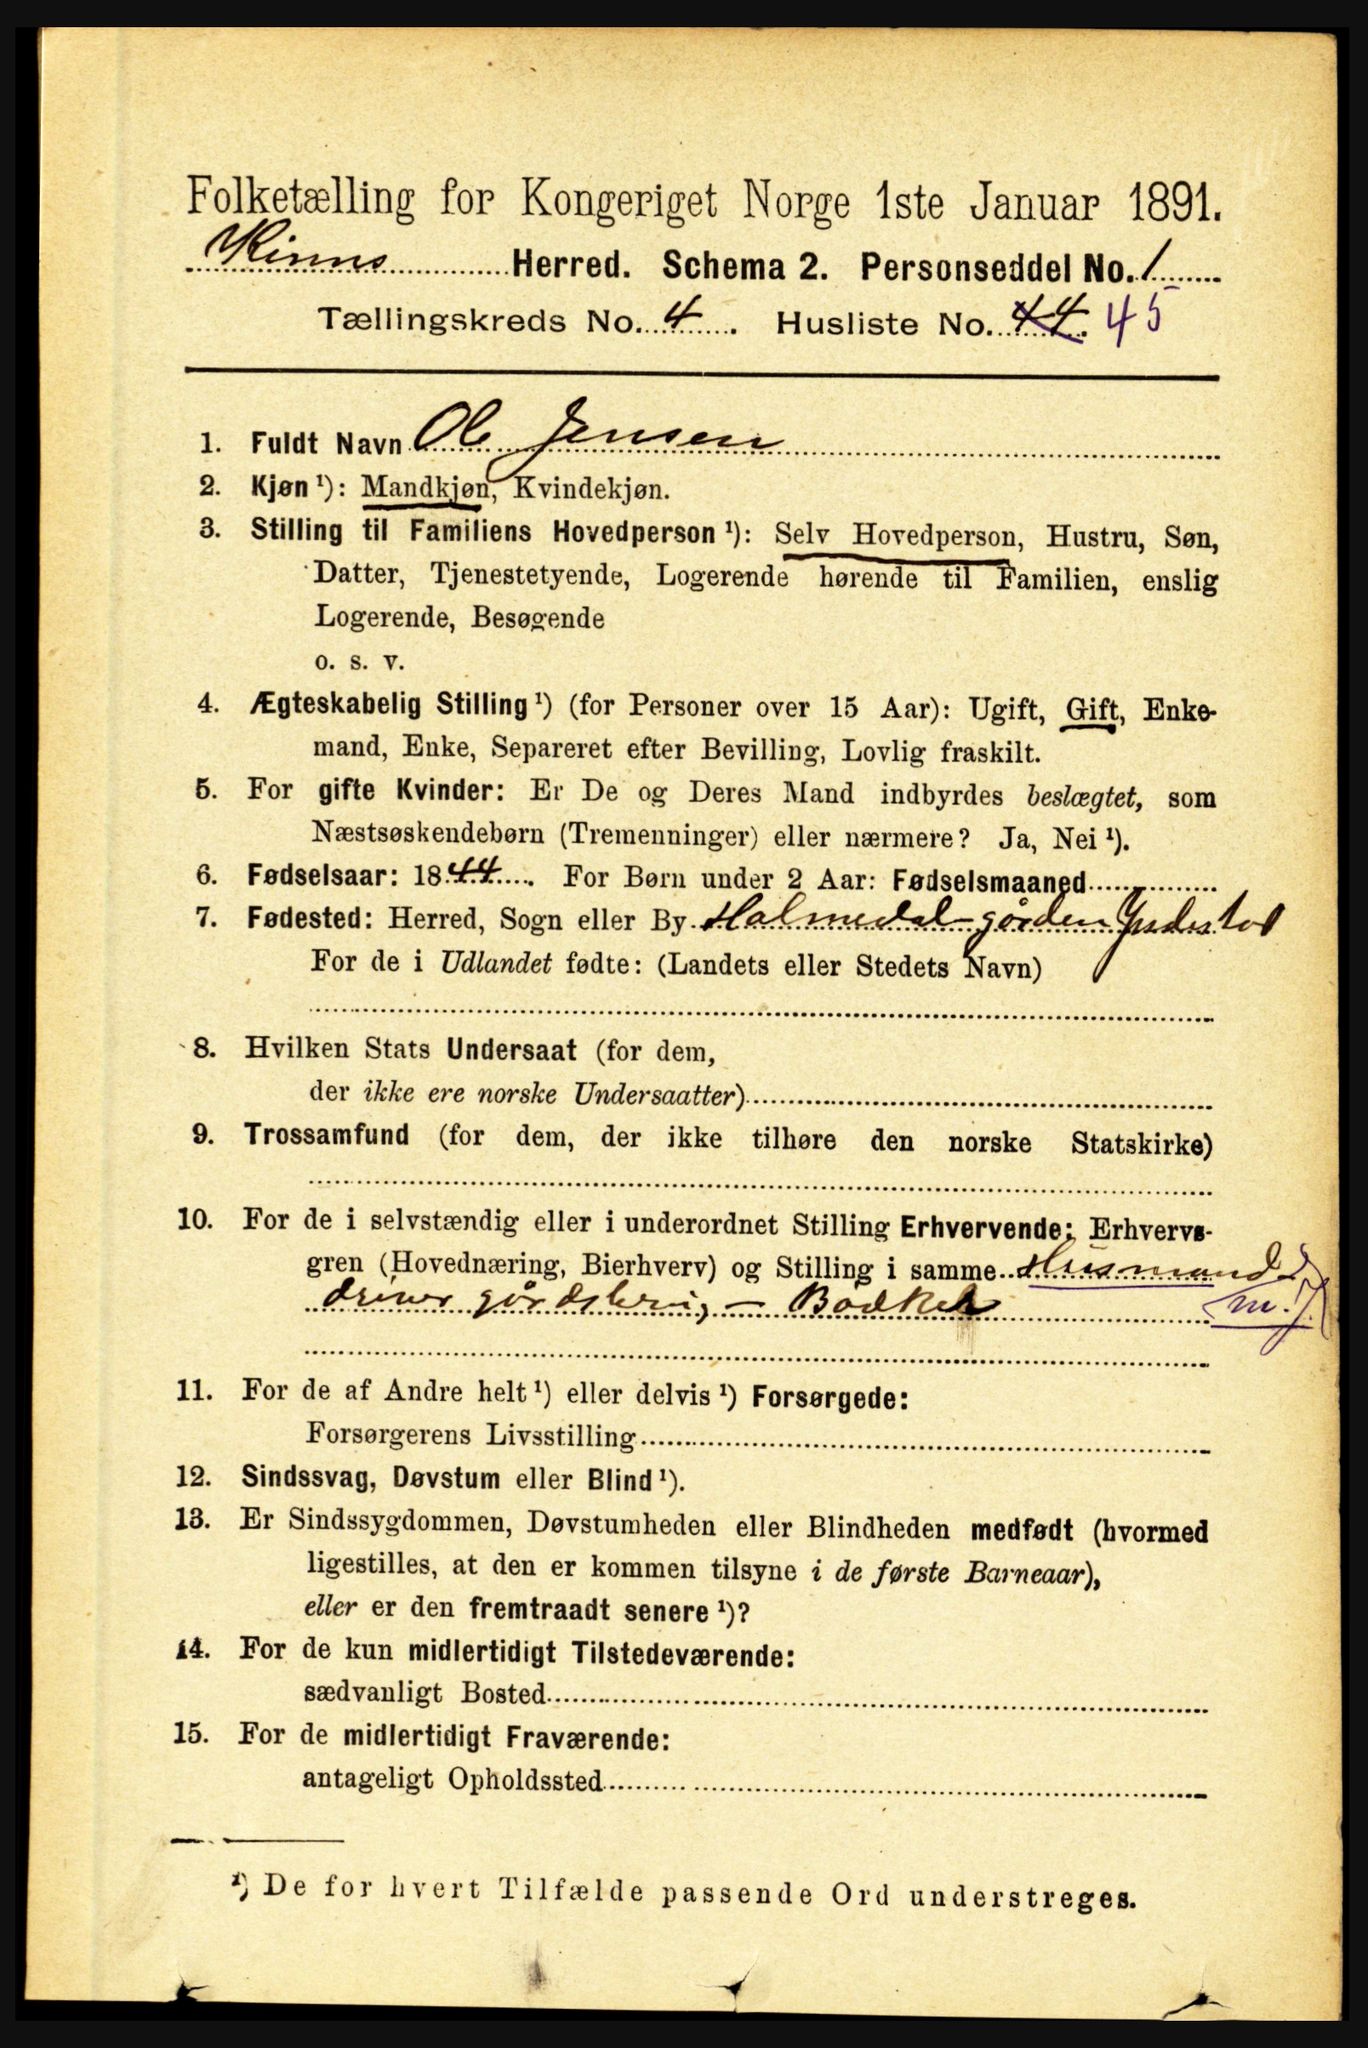 Folketælling for Kongeriget Norge 1ste Januar 1891.
Kinns Herred. Schema 2. Personseddel No. 1
Tællingskreds No. 4. Husliste No. 44. 45
1. Fuldt Navn Ole Jensen
2. Kjøn ¹): Mandkjøn, Kvindekjøn.
3. Stilling til Familiens Hovedperson ¹): Selv Hovedperson, Hustru, Søn,
Datter, Tjenestetyende, Logerende hørende til Familien, enslig
Logerende, Besøgende
o. s. v.
4. Ægteskabelig Stilling ¹) (for Personer over 15 Aar): Ugift, Gift, Enke-
mand, Enke, Separeret efter Bevilling, Lovlig fraskilt.
5. For gifte Kvinder: Er De og Deres Mand indbyrdes beslægtet, som
Næstsøskendebørn (Tremenninger) eller nærmere? Ja, Nei ¹).
6. Fødselsaar: 1844. For Børn under 2 Aar: Fødselsmaaned
7. Fødested: Herred, Sogn eller By Holmedal gården Yndestad
For de i Udlandet fødte: (Landets eller Stedets Navn)
8. Hvilken Stats Undersaat (for dem,
der ikke ere norske Undersaatter)
9. Trossamfund (for dem, der ikke tilhøre den norske Statskirke)
10. For de i selvstændig eller i underordnet Stilling Erhvervende: Erhvervs-
gren (Hovednæring, Bierhverv) og Stilling i samme Husmand
driver gårdsbrug, - Bødker m. J.
11. For de af Andre helt ¹) eller delvis ¹) Forsørgede:
Forsørgerens Livsstilling
12. Sindssvag, Døvstum eller Blind ¹).
13. Er Sindssygdommen, Døvstumheden eller Blindheden medfødt (hvormed
ligestilles, at den er kommen tilsyne i de første Barneaar),
eller er den fremtraadt senere ¹)?
14. For de kun midlertidigt Tilstedeværende:
sædvanligt Bosted
15. For de midlertidigt Fraværende:
antageligt Opholdssted
¹) De for hvert Tilfælde passende Ord understreges.